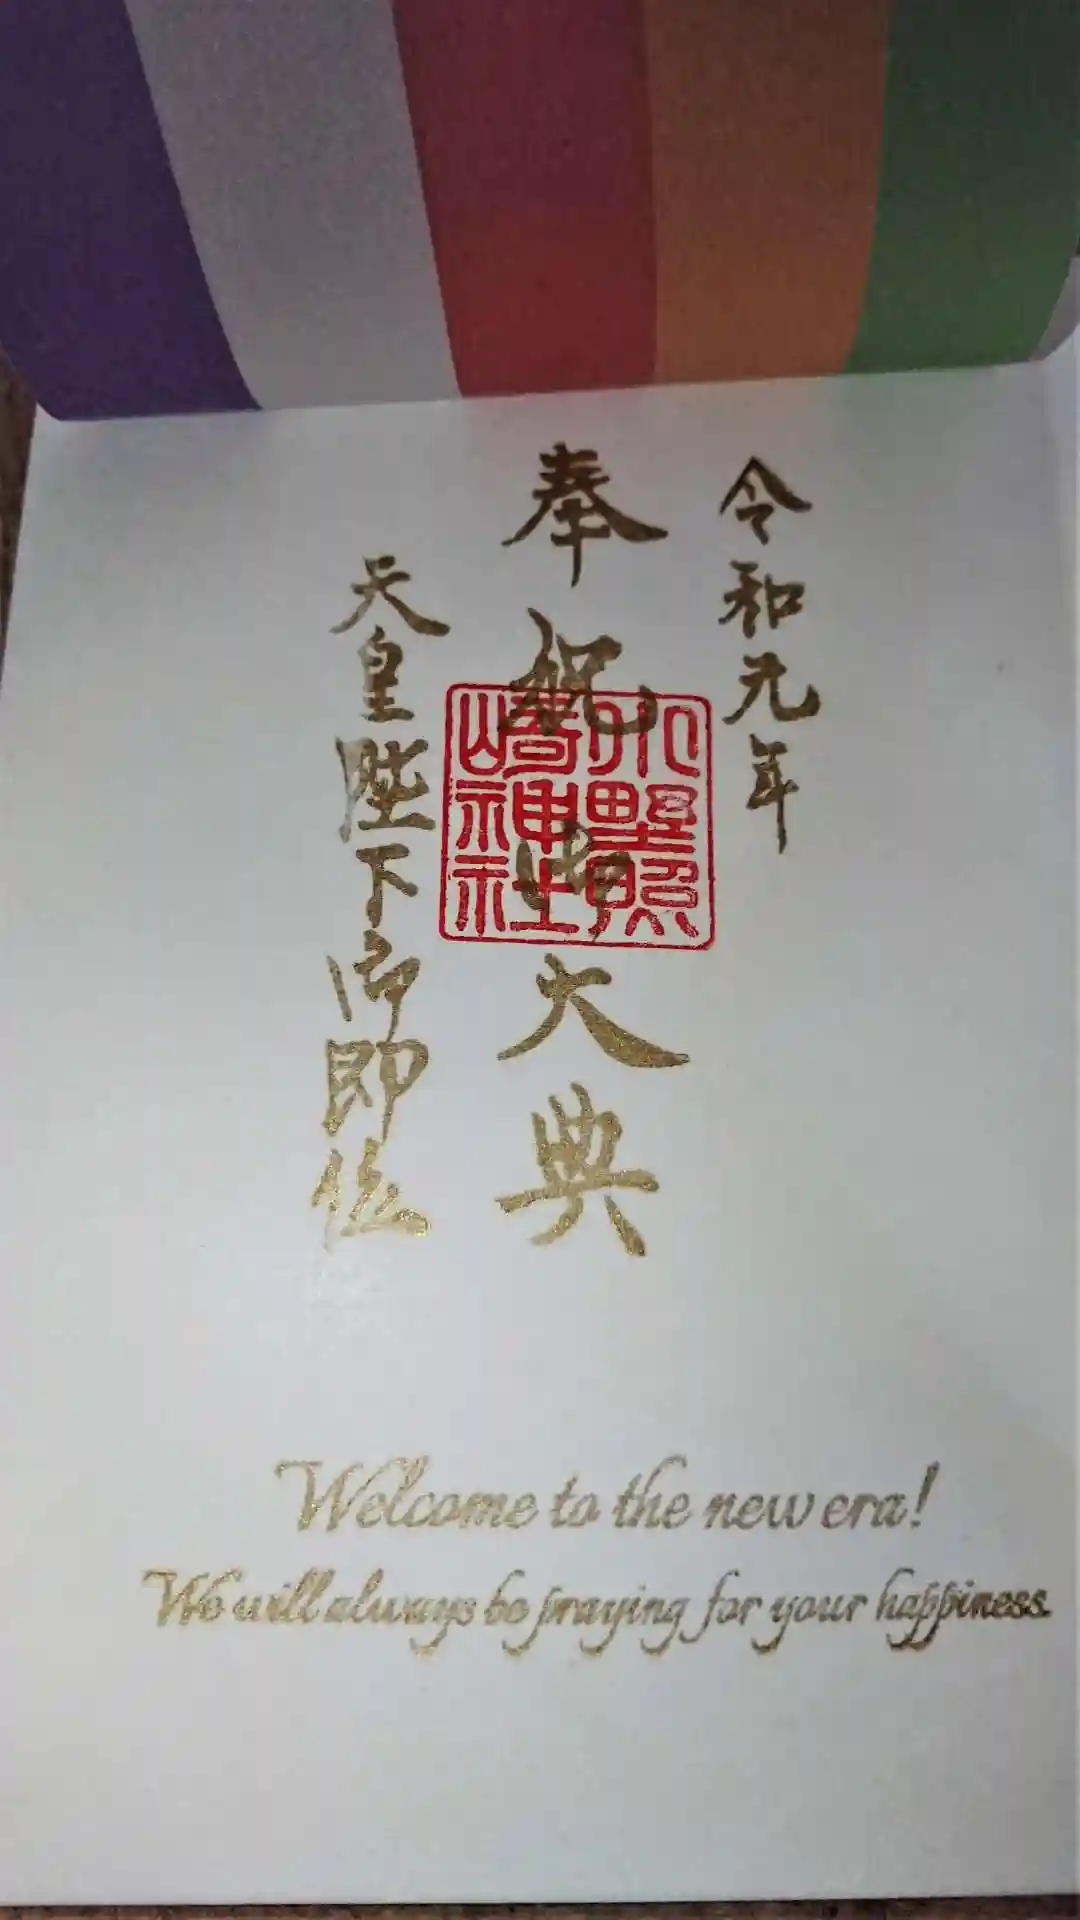 令和元年
奉祝御大典
天皇陛下御即位
小野照
崎神社
Welcome to the new era!
We will always be praying for your happiness.